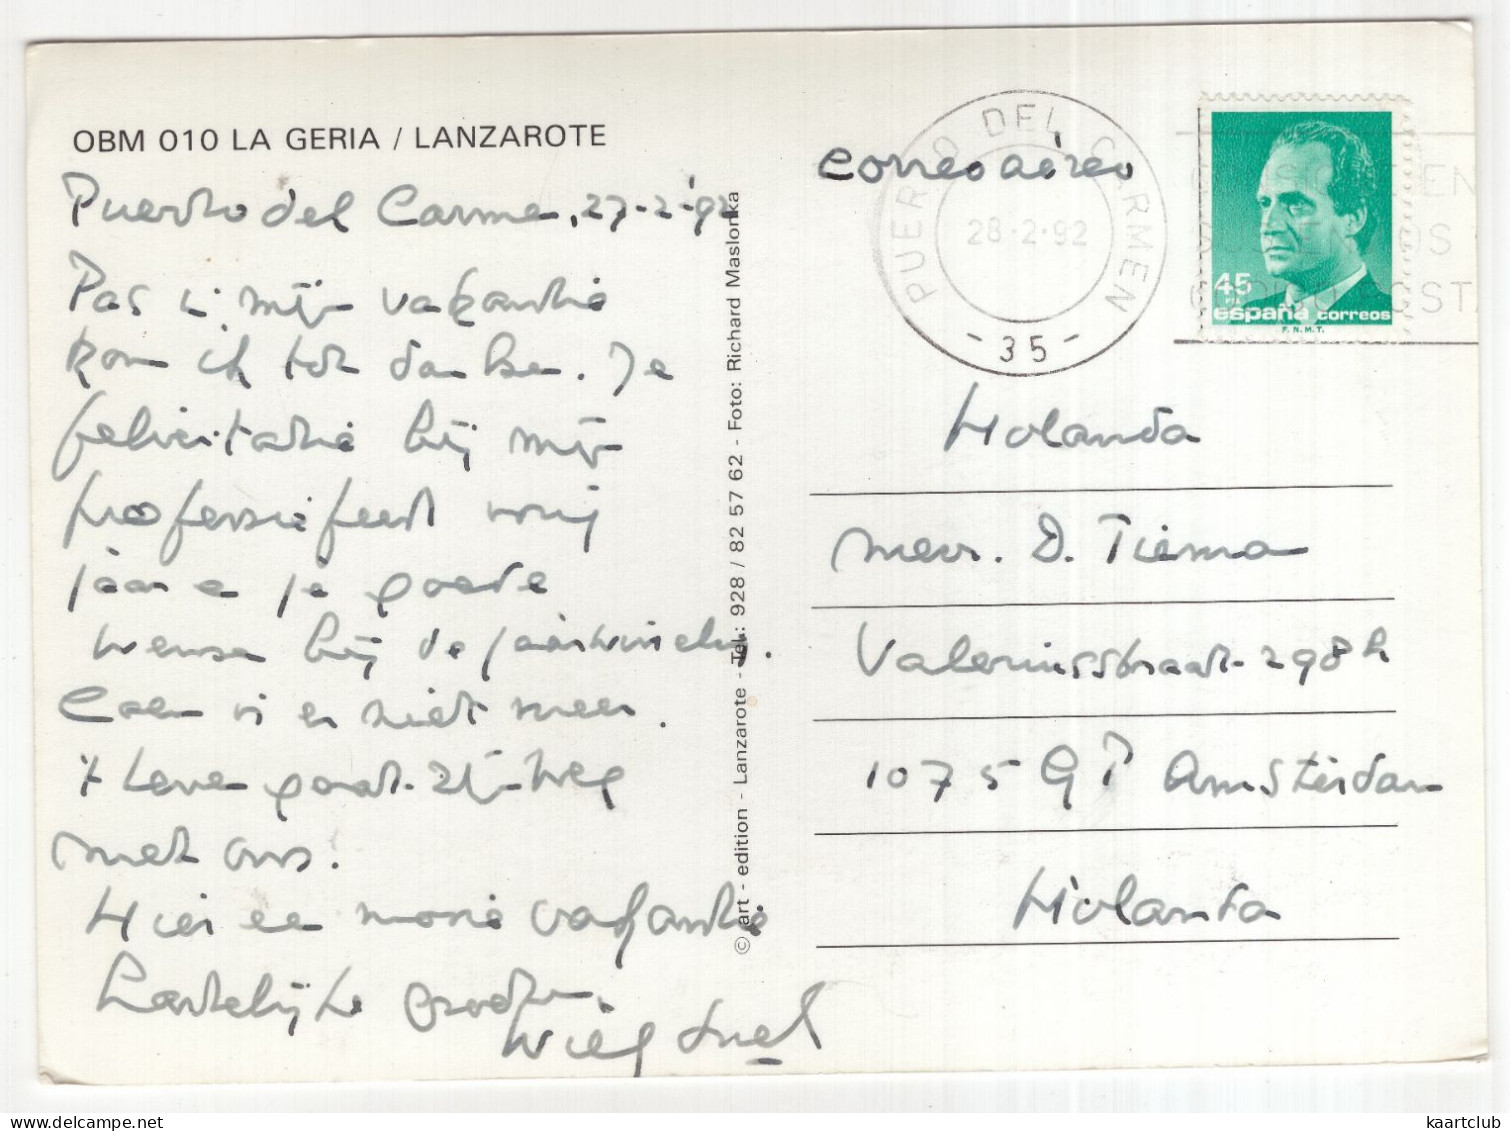 OBM 010 LA GERIA / LANZAROTE
Puerto del Carmen, 27-2-'92
Pas in mijn vakantie
kom ik tot danken. Je
felicitatie bij mijn
professiefeest vorig
jaar en je goede
wensen bij de jaarwisseling.
Coen is er niet meer.
't Leven gaat zijn weg
met ons.
Hier een mooie vakantie
Hartelijke groeten.
Wieg
© art - edition - Lanzarote - Tel.: 928 / 82 57 62 - Foto: Richard Maslonka
correo aéreo
PUERTO DEL CARMEN
28-2-92
- 35 -
45
España correos
F.N.M.T.
Holanda
mevr. D. Tiema
Valeriusstraat 298 h
1075 GP Amsterdam
Holanda
kaartclub